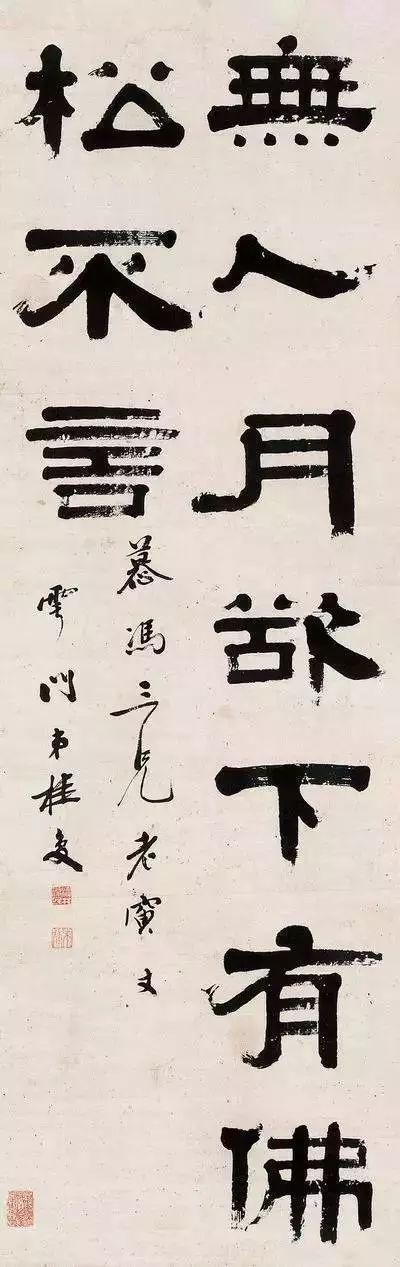 無人月欲下有佛
松不言
慕馮三兄老賓丈
雩門弟桂馥